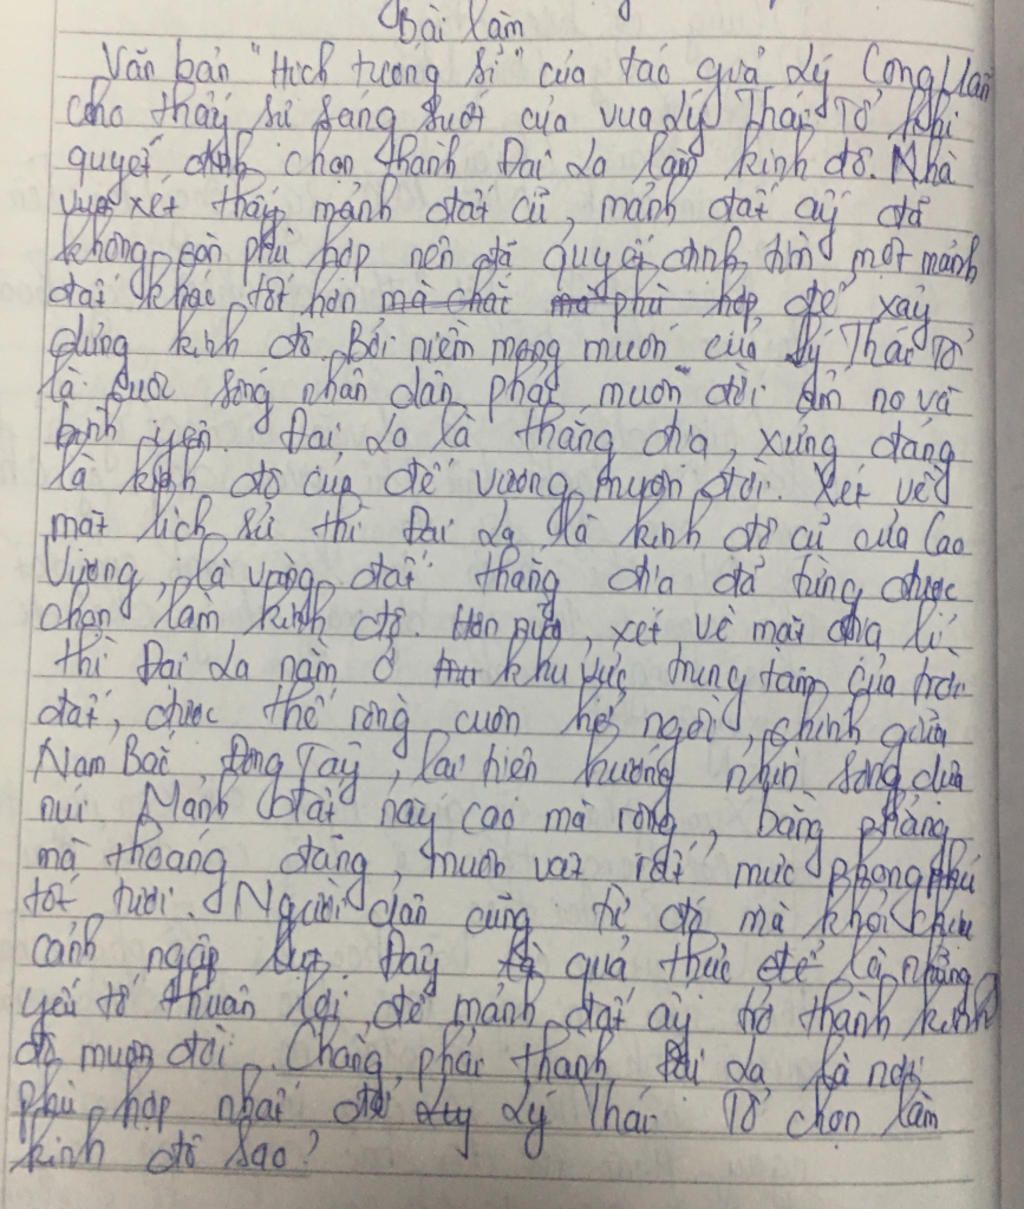 Bài làm
Văn bản "Hịch tướng sĩ" của tác giả Lý Công Uẩn
cho thấy sự sáng suốt của vua Lý Thái Tổ khi
quyết định chọn thành Đại La làm kinh đô. Nhà
vua xét thấy mảnh đất cũ, mảnh đất ấy đã
không còn phù hợp nên đã quyết định tìm một mảnh
đất khác tốt hơn mà chất mà phù hợp để xây
dựng kinh đô. Bởi niềm mong muốn của Lý Thái Tổ
là cuộc sống nhân dân phải muôn đời ấm no và
bình yên. Đại La là thắng địa, xứng đáng
là kinh đô của đế vương muôn đời. Xét về
mặt lịch sử thì Đại La là kinh đô cũ của Cao
Vương, là vùng đất thắng địa đã từng được
chọn làm kinh đô. Hơn nữa, xét về mặt địa lí
thì Đại La nằm ở khu vực trung tâm của trời
đất, được thế rồng cuộn hổ ngồi, chính giữa
Nam Bắc, Đông Tây, lại tiện hướng nhìn sông dựa
núi. Mảnh đất này cao mà rộng, bằng phẳng
mà thoáng đãng, muôn vật rất mực phong phú
tốt tươi. Người dân cũng từ đó mà khỏi chịu
cảnh ngập lụt. Đây quả thực để là những
yếu tố thuận lợi để mảnh đất ấy trở thành kinh
đô muôn đời. Chẳng phải thành Đại La là nơi
phù hợp nhất để Lý Thái Tổ chọn làm
kinh đô sao?